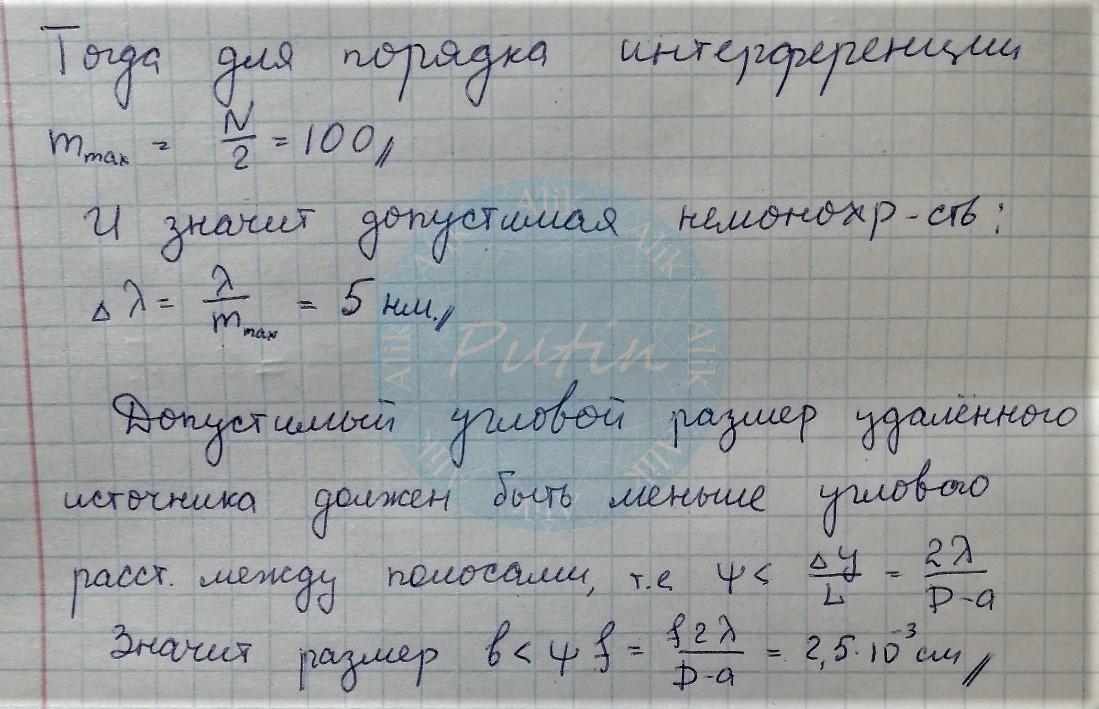 Тогда для порядка интерференции
m_max = N/2 = 100//
И значит допустимая немонохр-сть:
Δλ = λ/m_max = 5 нм.//
Допустимый угловой размер удалённого
источника должен быть меньше углового
расст. между полосами, т.е ψ < Δy/L = 2λ/D-a
Значит размер b < ψ f = f2λ/D-a = 2,5·10⁻³ см//
Putin
Alik Alik Alik Alik Alik